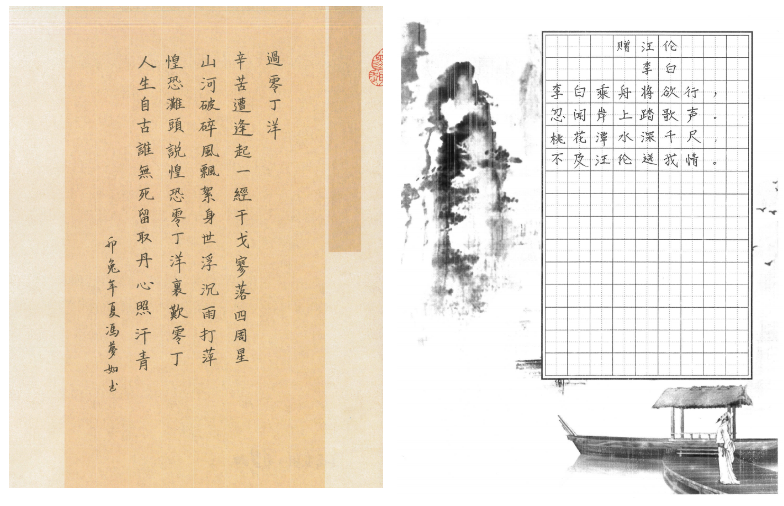 過零丁洋
辛苦遭逢起一經干戈寥落四周星
山河破碎風飄絮身世浮沉雨打萍
惶恐灘頭說惶恐零丁洋裏歎零丁
人生自古誰無死留取丹心照汗青
卯兔年夏馮夢如书
赠汪伦
李白
李白乘舟将欲行，
忽闻岸上踏歌声。
桃花潭水深千尺，
不及汪伦送我情。